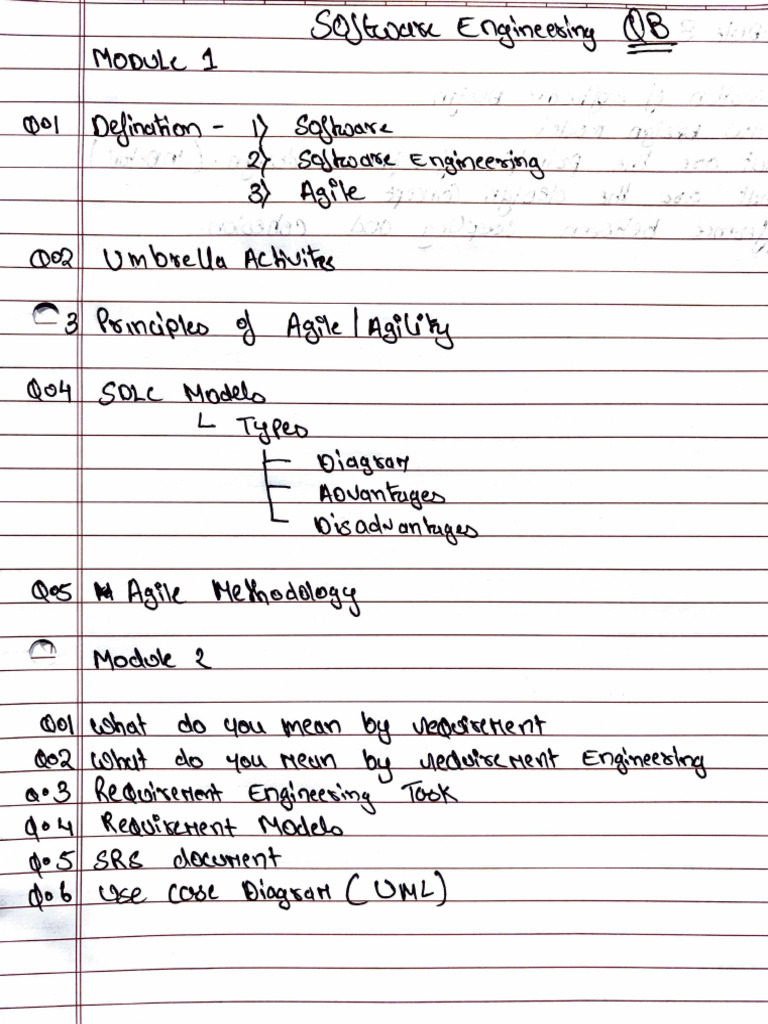 Software Engineering QB
MODULE 1
Q01 Defination - 1) Software
2) Software Engineering
3) Agile
Q02 Umbrella Activites
3 Principles of Agile / Agility
Q04 SDLC Models
Types
Diagram
Advantages
Disadvantages
Q05 Agile Methodology
Module 2
Q01 What do you mean by requirement
Q02 What do you mean by requirement Engineering
Q.3 Requirement Engineering Task
Q.4 Requirement Models
Q.5 SRS document
Q.6 Use case Diagram (UML)